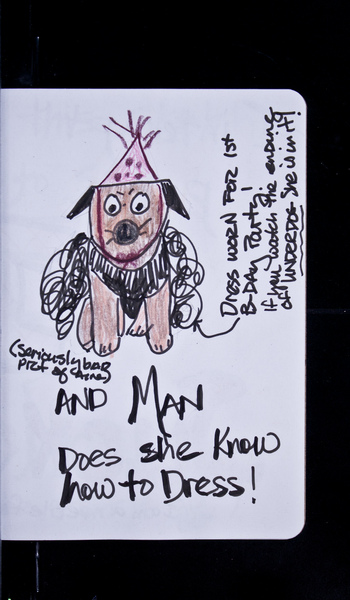 DRESS WORN FOR 1st
B-DAY Party!
If you watch the ending
of UNDERDOG She is in it!
(Seriously bad
AND MAN
Does she Know
how to Dress!